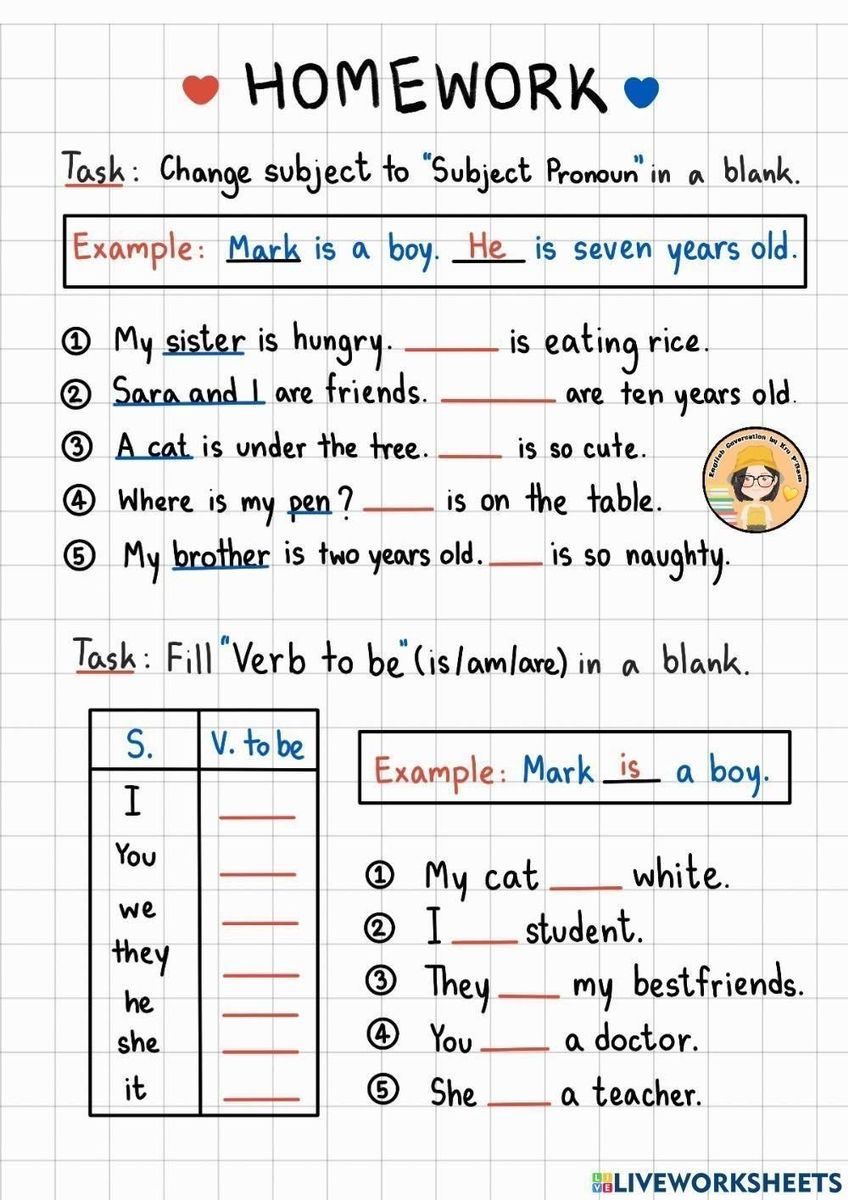 HOMEWORK
Task: Change subject to "Subject Pronoun" in a blank.
Example: Mark is a boy. He is seven years old.
① My sister is hungry. ______ is eating rice.
② Sara and I are friends. ______ are ten years old.
③ A cat is under the tree. ______ is so cute.
④ Where is my pen? ______ is on the table.
⑤ My brother is two years old. ______ is so naughty.
English Covercation by Kru P'Nam
Task: Fill "Verb to be" (is/am/are) in a blank.
S. V. to be
I ______
You ______
we ______
they ______
he ______
she ______
it ______
Example: Mark is a boy.
① My cat ______ white.
② I ______ student.
③ They ______ my bestfriends.
④ You ______ a doctor.
⑤ She ______ a teacher.
LIVE LIVEWORKSHEETS